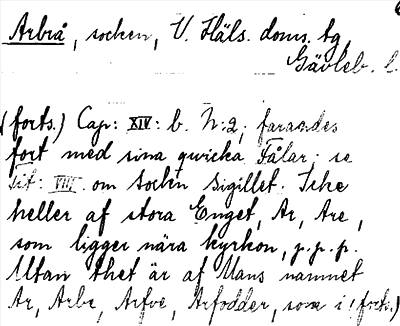 Arbrå, socken, V. Häls. doms. tg,
Gävleb. l.
(forts.) Cap: XIV: b. N:2; farandes
fort med sina qwicka Fålar; se
sit: VIII. om Sockn Sigillet. Icke
heller af stora Enget, Ar, Are,
som ligger nära kyrkon, p.p.p.
Utan thet är af Mans namnet
Ar, Arbe, Arfve, Arfodder, som i (forts.)